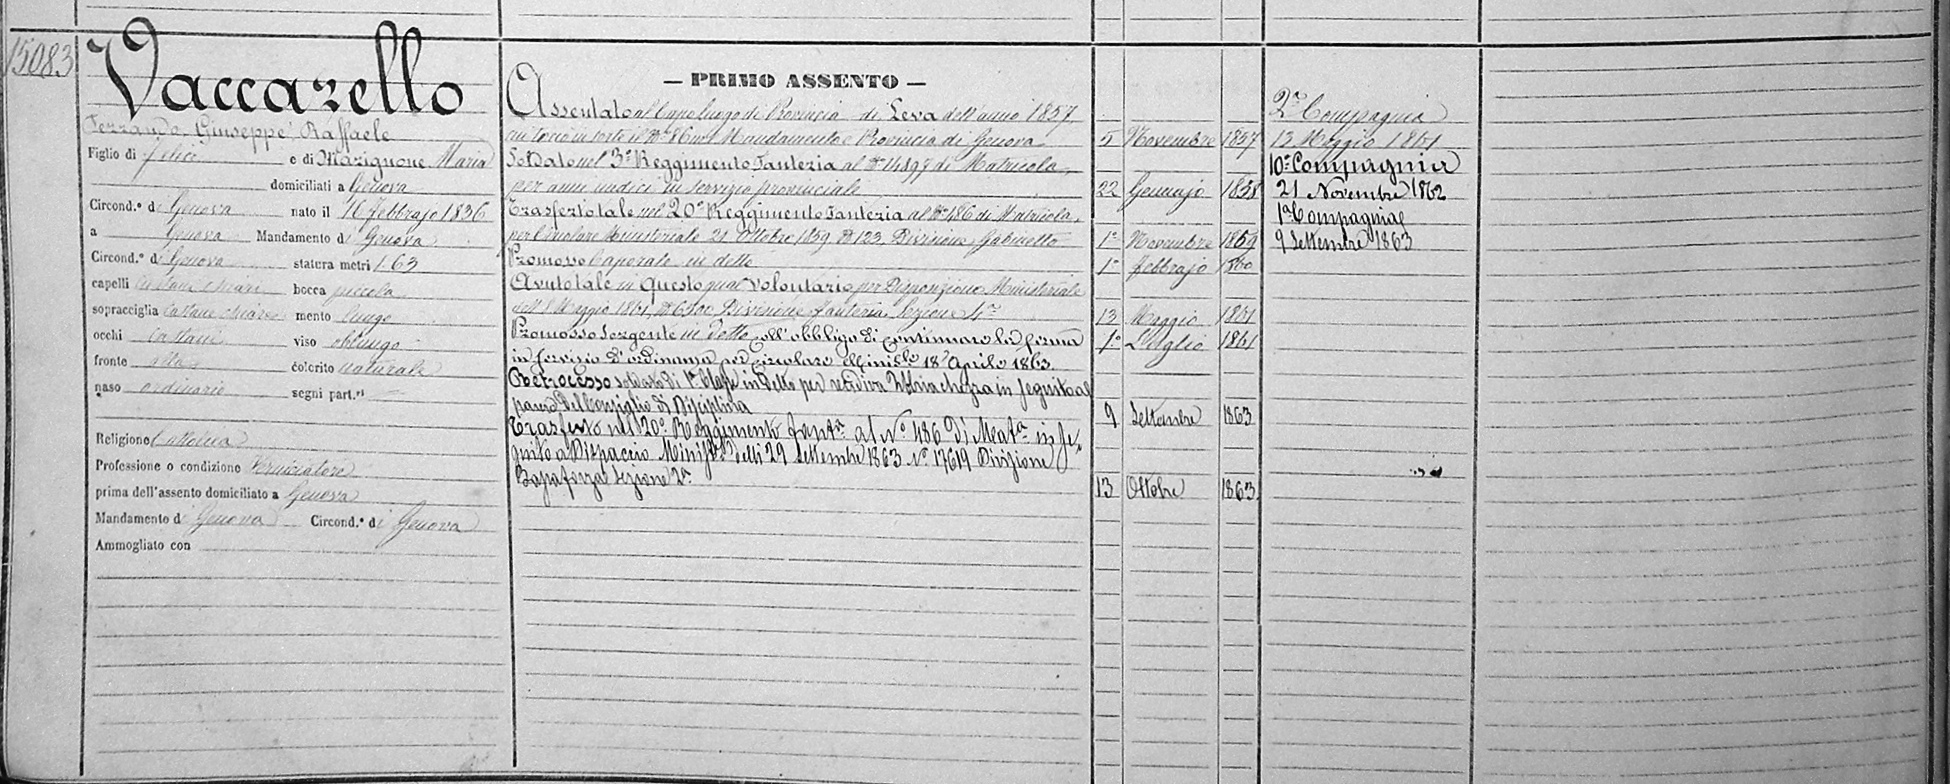 15083
Vaccarello
Ferrando Giuseppe Raffaele
Figlio di Felice e di Marignone Maria
domiciliati a Genova
Circond.º di Genova nato il 16 febbrajo 1836
a Genova Mandamento di Genova
Circond.º di Genova statura metri 1.63
capelli castani chiari bocca piccola
sopracciglia castane chiare mento lungo
occhi castani viso oblungo
fronte alta colorito naturale
naso ordinario segni part.ri
Religione Cattolica
Professione o condizione Verniciatore
prima dell'assento domiciliato a Genova
Mandamento di Genova Circond.º di Genova
Ammogliato con
— PRIMO ASSENTO —
Assentato al Capoluogo di Provincia di Leva dell'anno 1857
cui toccò in sorte il Nº 86 nel Mandamento e Provincia di Genova 5 Novembre 1857
Soldato nel 3º Reggimento Fanteria al Nº 11897 di Matricola,
per anni undici in servizio provinciale 22 Gennajo 1858
Trasferto tale nel 20º Reggimento Fanteria al Nº 486 di Matricola,
per Circolare Ministeriale 21 Ottobre 1859 Nº 123 Divisione Gabinetto 1º Novembre 1859
Promosso Caporale in detto 1º febbrajo 1860
Avuto tale in Questo qual Volontario per Disposizione Ministeriale
dell' 8 Maggio 1861, Divisione Fanteria Sezione 13 Maggio 1861
Promosso Sergente in detto coll'obbligo di continuare la ferma 1º Luglio 1861
in servizio d'ordinanza per circolare Minist.le 18 Aprile 1863.
Retrocesso soldato di 1ª Classe in detto per recidiva Ubbriachezza in seguito al
parere del Consiglio di Disciplina 9 Settembre 1863
Trasferto nel 20º Reggimento Fant.ª al Nº 486 di Mat.ª in se-
guito a Dispaccio Minist.le delli 29 Settembre 1863 Nº 17619 Divisione
Bassaforza Sezione 2ª 13 Ottobre 1863
2ª Compagnia
13 Maggio 1861
10ª Compagnia
21 Novembre 1862
1ª Compagnia
9 Settembre 1863